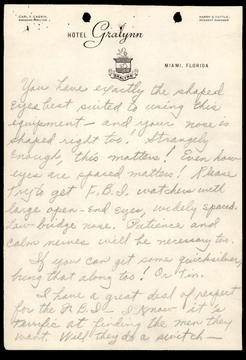 CARL T. CASKIN,
MANAGING DIRECTOR
HARRY G. TUTTLE,
RESIDENT MANAGER
HOTEL Gralynn
MIAMI, FLORIDA
You have exactly the shaped
eyes best suited to using this
equipment — and your nose is
shaped right too! Strangely
enough, this matters! Even how
eyes are spaced matters! Please
try to get F.B.I. watchers with
large open-end eyes, widely spaced.
Low-bridge nose. Patience and
calm nerves will be necessary too.
If you can get some quicksilver,
bring that along too! Or tin.
I have a great deal of respect
for the F.B.I — I know it is
terrific at finding the men they
want. Will they do a switch —